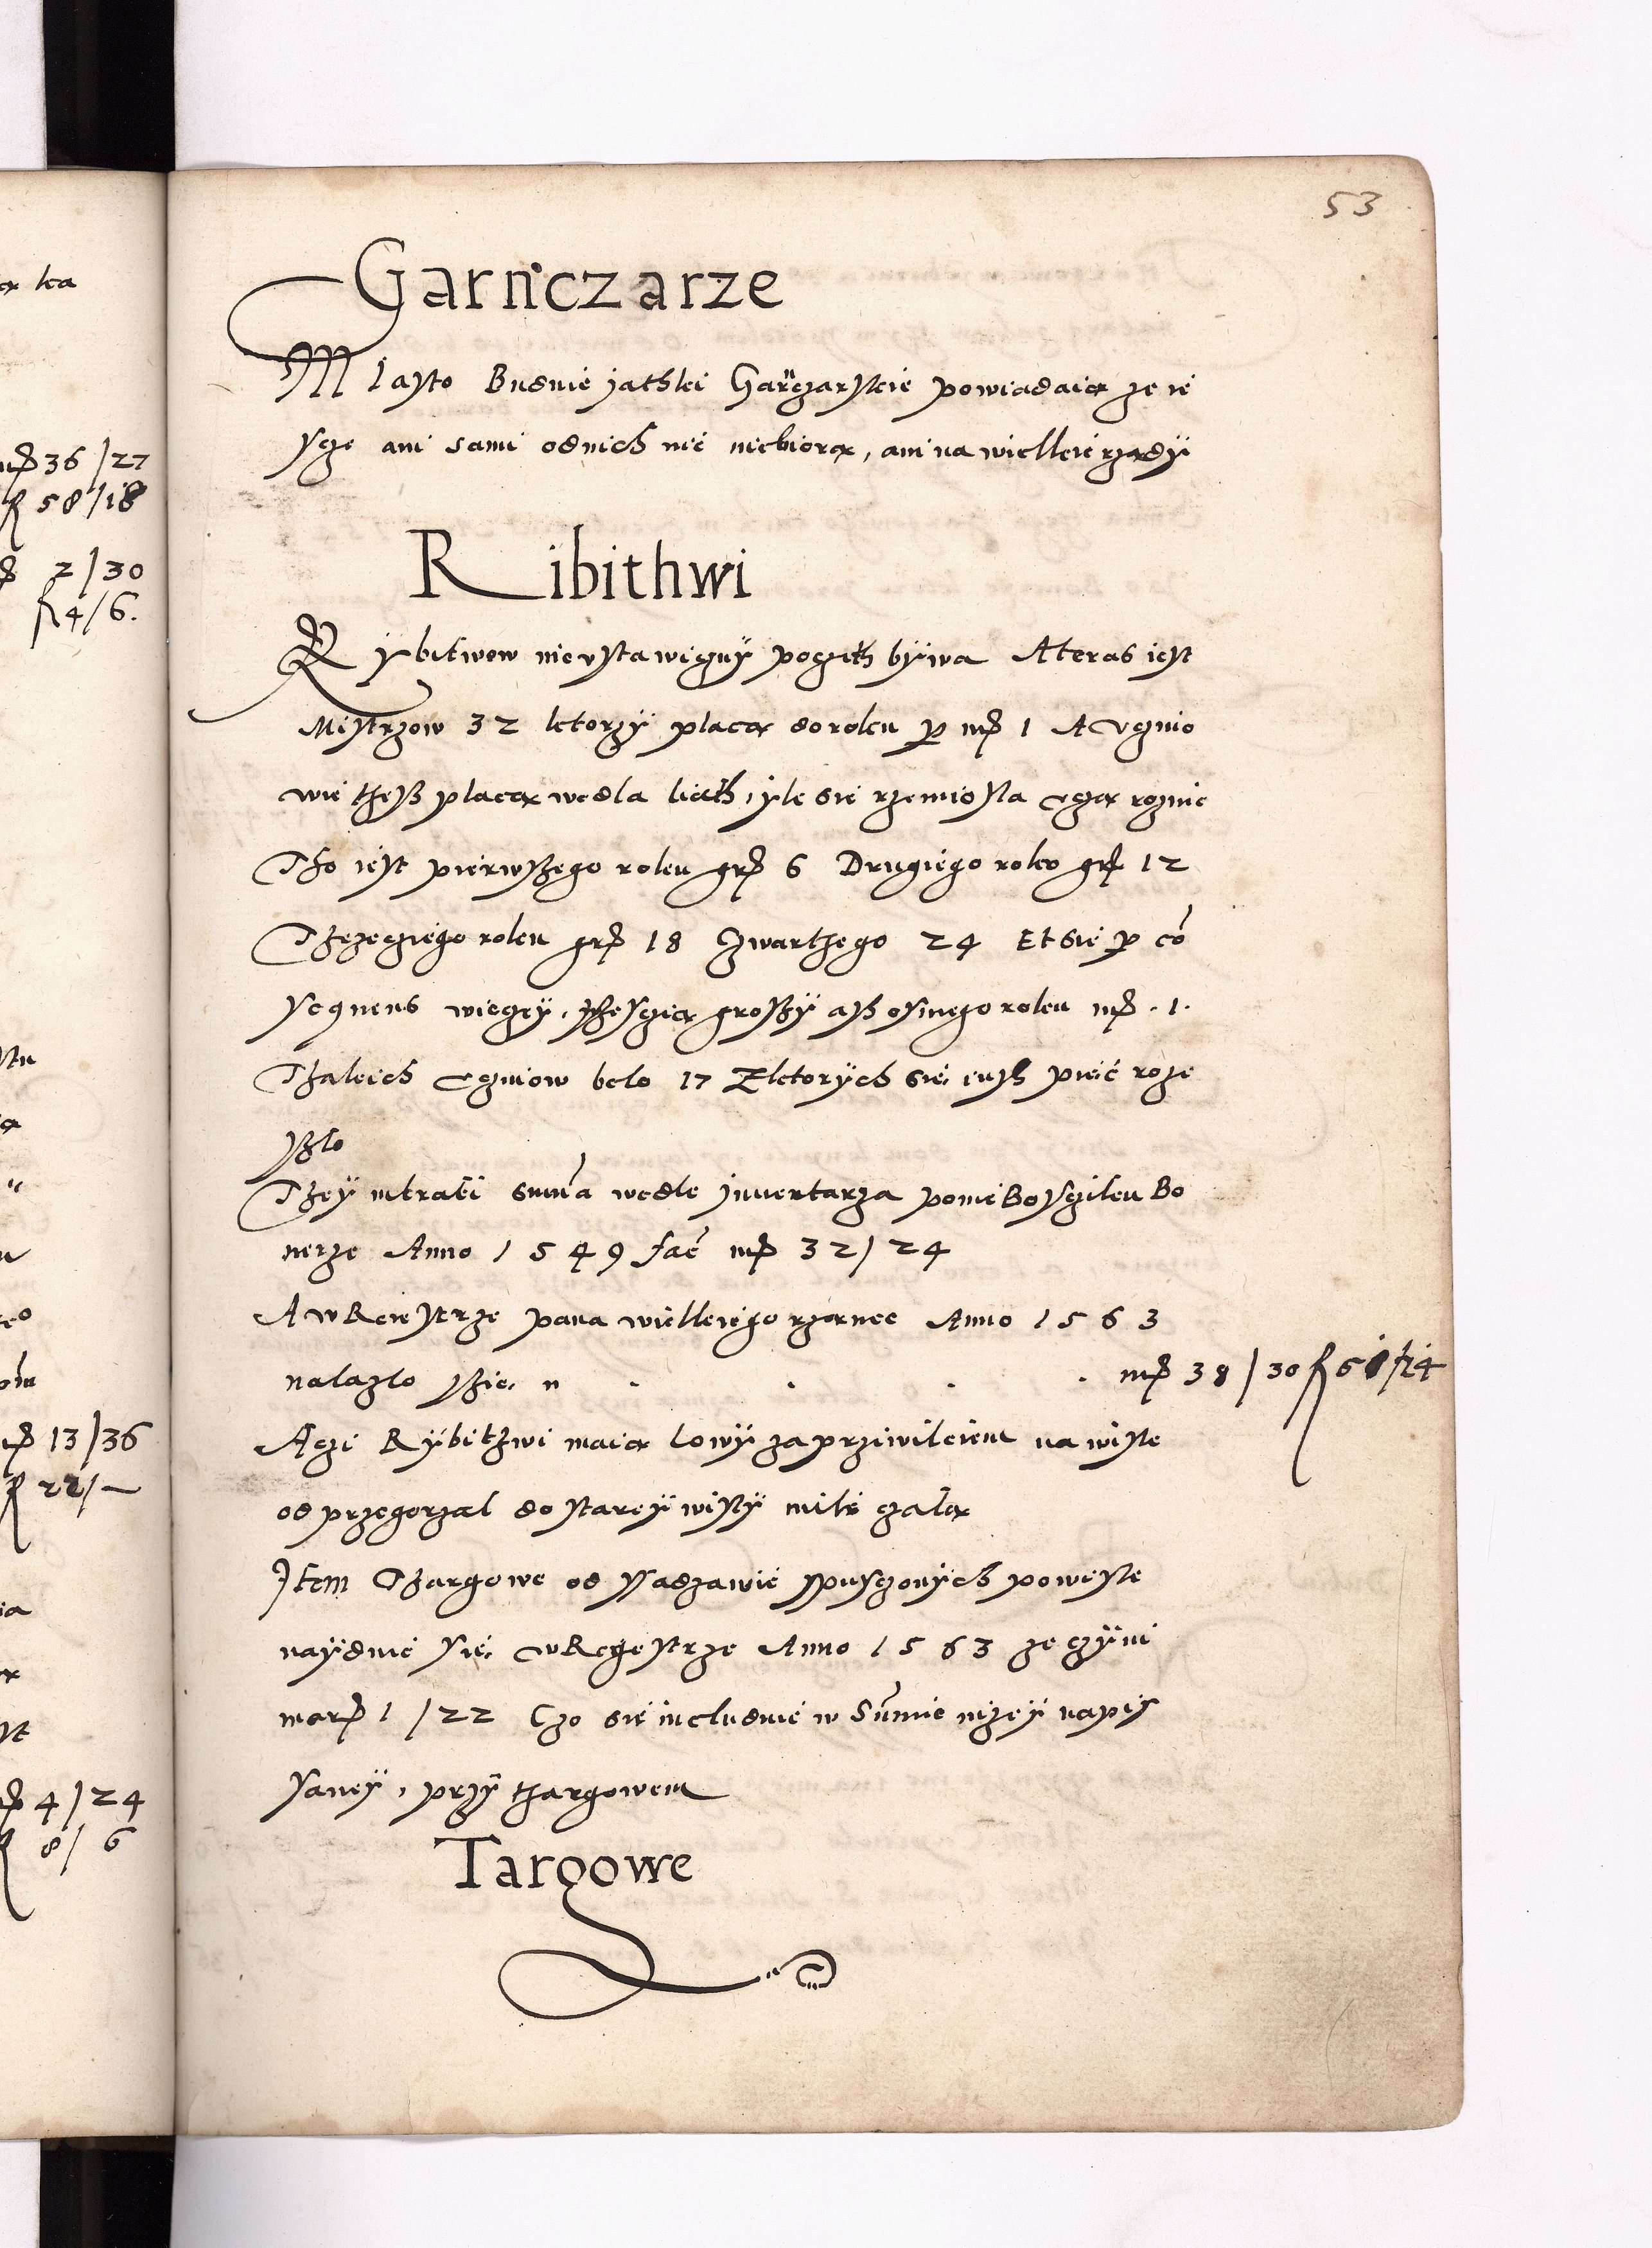 53
Garnczarze
Miasto Buduie jathki Garczarskie powiadaia ze ie
scze ani sami odnich nic niebiora, ani na wielkie rządÿ
Ribithwi
Rybitwow nie vstawiczny poczeth bywa A teras iest
Mistrzow 32 ktorzÿ placa do roku po mr 1 A Vcznio
wie thesz placa wedla liath, yle sie rzemiosla vcza roznie
Tho iest pierwszego roku gr 6 Drugiego roku gr 12
Thrzecziego roku gr 18 Czwarthego 24 Et sic per con
sequens wieczey, sthescia groszÿ asz osmego roku mr .1.
Thakich vczniow belo 17 Z ktorÿch sie iusz piec roze
szlo
They intrati summa wedle jnuentarza panie Bosczikiu Bo
nerze Anno 1549 fac mr 32/24
A w Reiestrze pana wielkiego rzadnee Anno 1563
nalazlo szie . . . . mr 38/30 f 61/24
A czi Rÿbithwi maia lowÿ za prziwileiem na wisle
od przegorzal do starey wisłÿ mile czala
Item Thargowe od ssadzawic spusczonÿch powesle
naÿduie sie w Regestrze Anno 1563 ze czÿni
mar 1/22 Czo sie includuie w Summie nizeÿ napis
saneÿ, przÿ thargowem
Targowe
36/27
58/18
2/30
4/6.
13/36
22/—
4/24
8/6